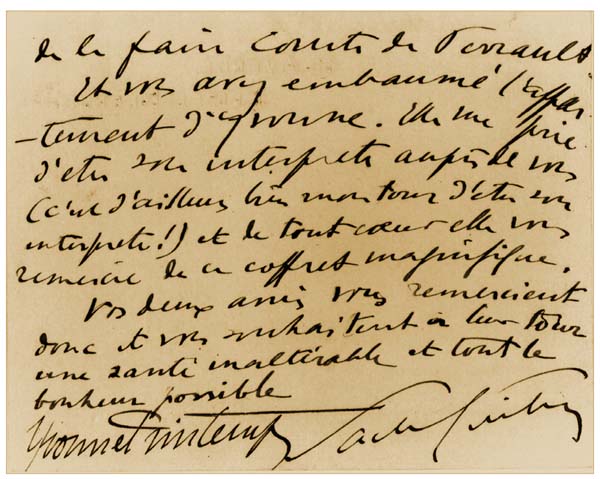 de la faire Comte de Perrault
Et vous avez embaumé l'appar
-tement d'Yvonne. Elle me prie
d'être son interprète auprès de vous
(c'est d'ailleurs bien mon tour d'être son
interprète!) et de tout cœur elle vous
remercie de ce coffret magnifique.
Vos deux amis vous remercient
donc et vous souhaitent à leur tour
une santé inaltérable et tout le
bonheur possible
Yvonne Printemps Sacha Guitry